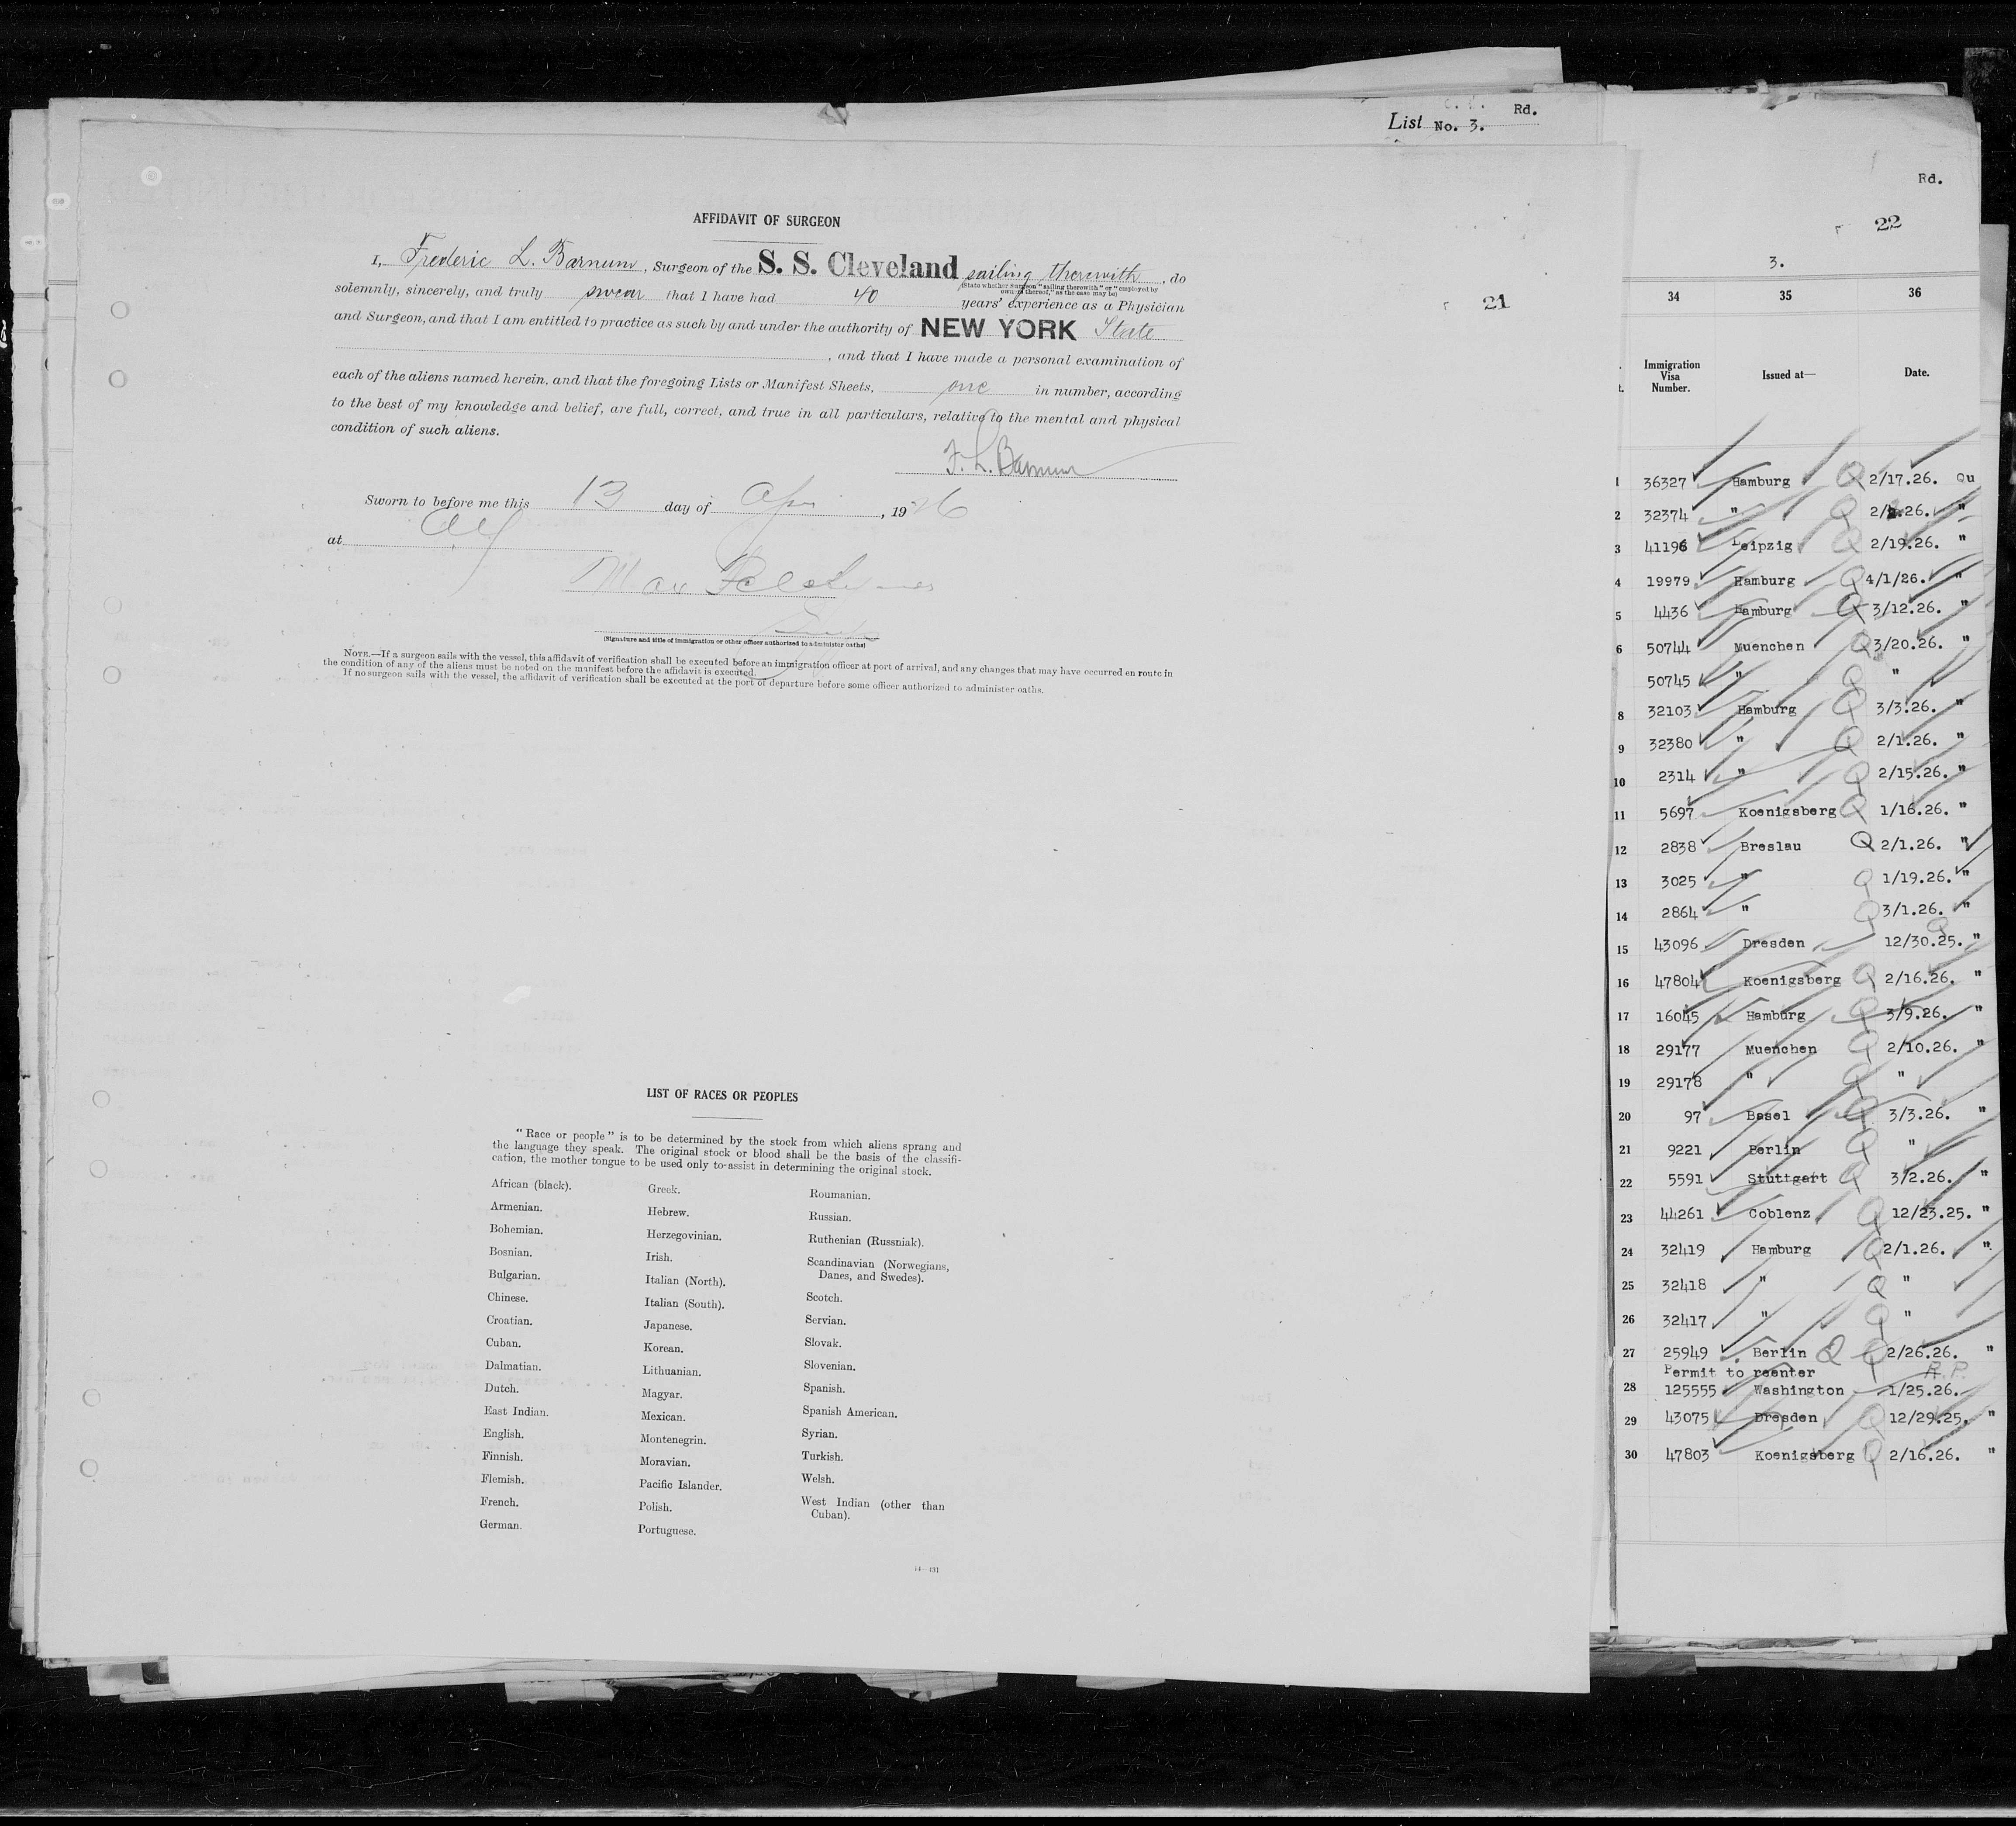 Rd.
List No. 3.
AFFIDAVIT OF SURGEON
I, Frederic L. Barnum, Surgeon of the S. S. Cleveland sailing therewith, do
(State whether Surgeon "sailing therewith" or "employed by
owners thereof," as the case may be)
solemnly, sincerely, and truly swear that I have had 40 years' experience as a Physician
and Surgeon, and that I am entitled to practice as such by and under the authority of NEW YORK State
, and that I have made a personal examination of
each of the aliens named herein, and that the foregoing Lists or Manifest Sheets, one in number, according
to the best of my knowledge and belief, are full, correct, and true in all particulars, relative to the mental and physical
condition of such aliens.
F. L. Barnum
Sworn to before me this 13 day of Apr, 1926
at
Max
(Signature and title of immigration or other officer authorized to administer oaths)
NOTE.—If a surgeon sails with the vessel, this affidavit of verification shall be executed before an immigration officer at port of arrival, and any changes that may have occurred en route in
the condition of any of the aliens must be noted on the manifest before the affidavit is executed.
If no surgeon sails with the vessel, the affidavit of verification shall be executed at the port of departure before some officer authorized to administer oaths.
21
LIST OF RACES OR PEOPLES
"Race or people" is to be determined by the stock from which aliens sprang and
the language they speak. The original stock or blood shall be the basis of the classifi-
cation, the mother tongue to be used only to assist in determining the original stock.
African (black).
Armenian.
Bohemian.
Bosnian.
Bulgarian.
Chinese.
Croatian.
Cuban.
Dalmatian.
Dutch.
East Indian.
English.
Finnish.
Flemish.
French.
German.
Greek.
Hebrew.
Herzegovinian.
Irish.
Italian (North).
Italian (South).
Japanese.
Korean.
Lithuanian.
Magyar.
Mexican.
Montenegrin.
Moravian.
Pacific Islander.
Polish.
Portuguese.
Roumanian.
Russian.
Ruthenian (Russniak).
Scandinavian (Norwegians,
Danes, and Swedes).
Scotch.
Servian.
Slovak.
Slovenian.
Spanish.
Spanish American.
Syrian.
Turkish.
Welsh.
West Indian (other than
Cuban).
Rd.
22
3.
34 35 36
Immigration
Visa
Number.
Issued at—
Date.
1 36327 Hamburg Q 2/17.26. Qu
2 32374 " Q 2/ .26. "
3 41196 Leipzig Q 2/19.26. "
4 19979 Hamburg Q 4/1/26. "
5 4436 Hamburg Q 3/12.26. "
6 50744 Muenchen Q 3/20.26. "
50745 " Q "
8 32103 Hamburg Q 3/3.26. "
9 32380 " Q 2/1.26. "
10 2314 " Q 2/15.26. "
11 5697 Koenigsberg Q 1/16.26. "
12 2838 Breslau Q 2/1.26. "
13 3025 " Q 1/19.26. "
14 2864 " Q 3/1.26. "
15 43096 Dresden Q 12/30.25. "
16 47804 Koenigsberg Q 2/16.26. "
17 16045 Hamburg Q 3/9.26. "
18 29177 Muenchen Q 2/10.26. "
19 29178 " Q "
20 97 Basel Q 3/3.26. "
21 9221 Berlin Q "
22 5591 Stuttgart Q 3/2.26. "
23 44261 Coblenz Q 12/23.25. "
24 32419 Hamburg Q 2/1.26. "
25 32418 " Q "
26 32417 " Q "
27 25949 Berlin Q Q 2/26.26. "
Permit to reenter R.P.
28 125555 Washington 1/25.26.
29 43075 Dresden Q 12/29.25. "
30 47803 Koenigsberg Q 2/16.26. "